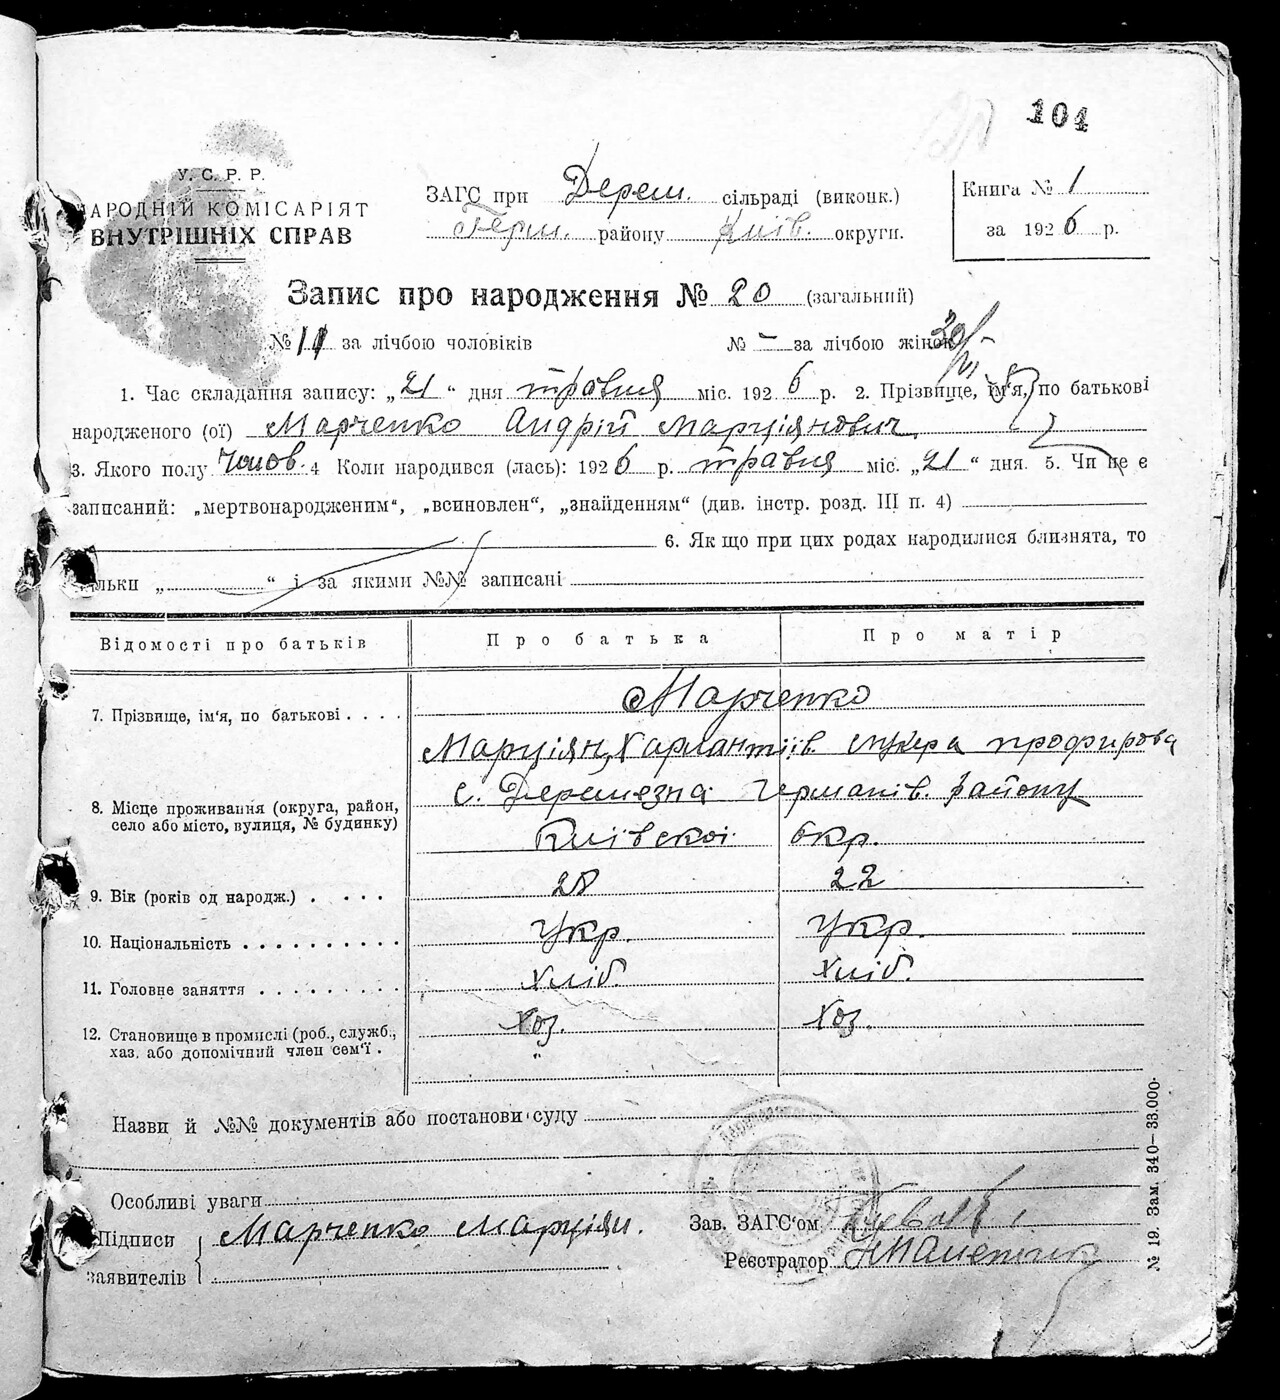 104
У. С. Р. Р.
АРОДНІЙ КОМІСАРІЯТ
ВНУТРІШНІХ СПРАВ
ЗАГС при Дерем. сільраді (виконк.)
Герм. району Київ. округи.
Книга № 1
за 1926 р.
Запис про народження № 20 (загальний)
№ 11 за лічбою чоловіків № – за лічбою жінок
1. Час складання запису: „21“ дня травня міс. 1926 р. 2. Прізвище, ім'я, по батькові
народженого (ої) Марченко Андрій Марціянович
3. Якого полу Чолов. 4 Коли народився (лась): 1926 р. травня міс. „21“ дня. 5. Чи не є
записаний: „мертвонародженим“, „всиновлен“, „знайденням“ (див. інстр. розд. III п. 4)
6. Як що при цих родах народилися близнята, то
льки „ “ і за якими №№ записані
Відомості про батьків Про батька Про матір
7. Прізвище, ім'я, по батькові . . . . Марченко
Марціян Харлантіів. Лукера профирова
с. Деремезна Германів. району
8. Місце проживання (округа, район,
село або місто, вулиця, № будинку)
Київскоі окр.
9. Вік (років од народж.) . . . . 28 22
10. Національність . . . . . . . . . . Укр. Укр.
11. Головне заняття . . . . . . . . . Хліб. Хліб.
12. Становище в промислі (роб., служб., Хоз. Хоз.
хаз. або допомічний член сем'ї .
Назви й №№ документів або постанови суду
Особливі уваги
Підписи Марченко Марціян.
заявителів
Зав. ЗАГС'ом
Реєстратор
№ 19. Зам. 340—33.000.